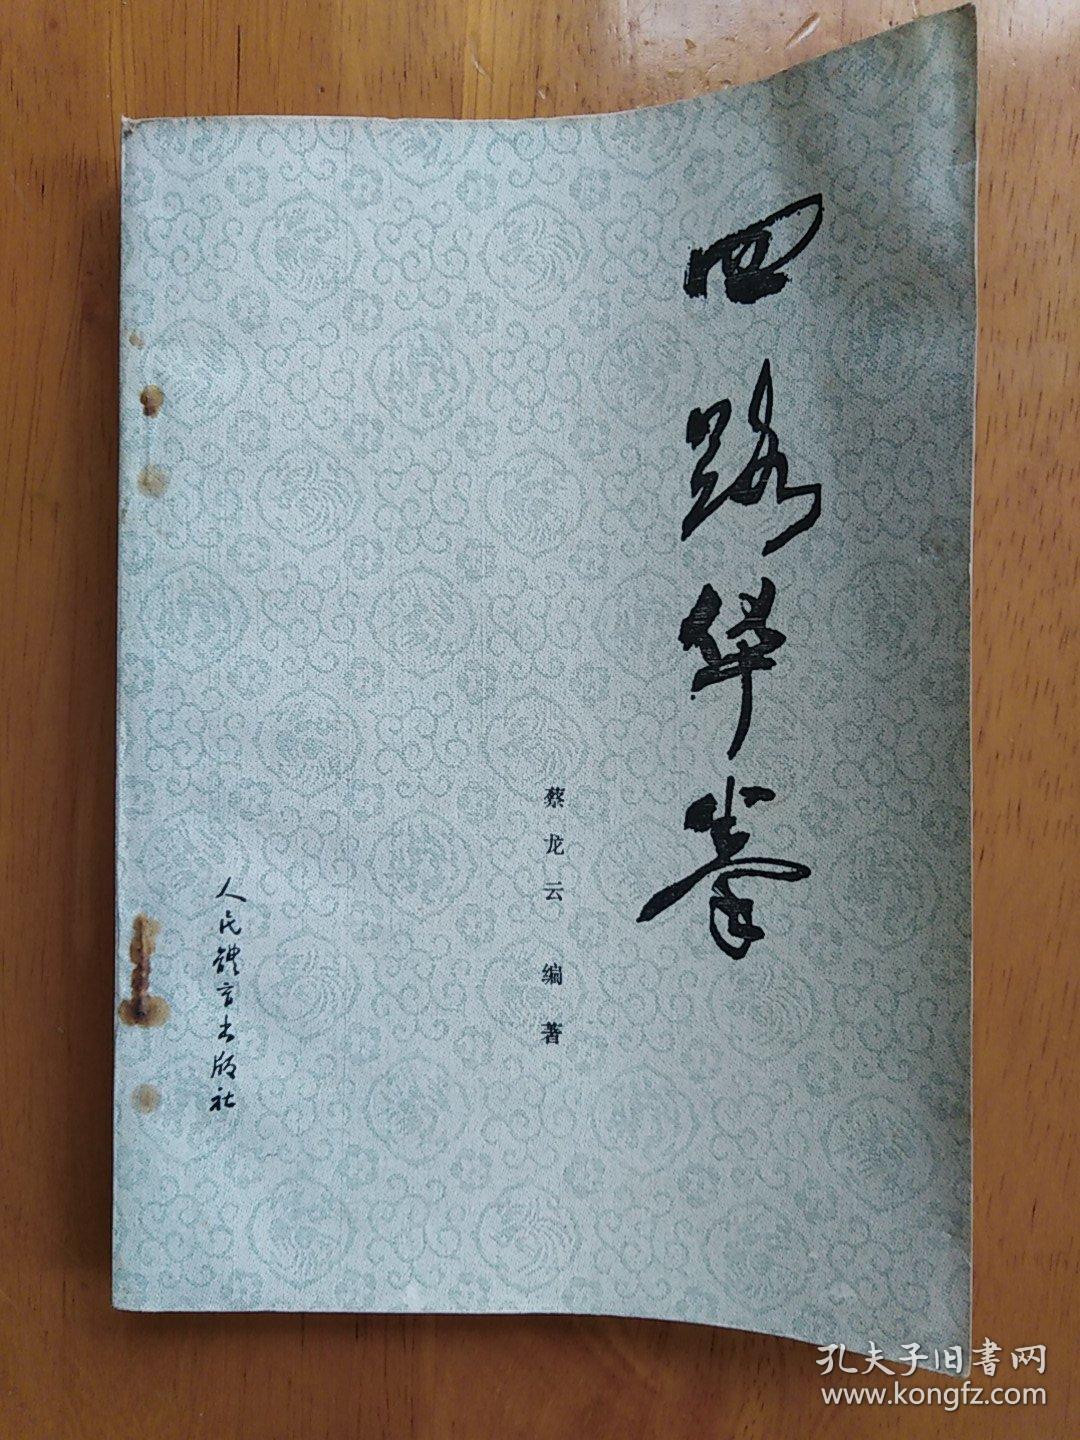 四路华拳
蔡龙云 编著
人民體育出版社
孔夫子旧書网
www.kongfz.com